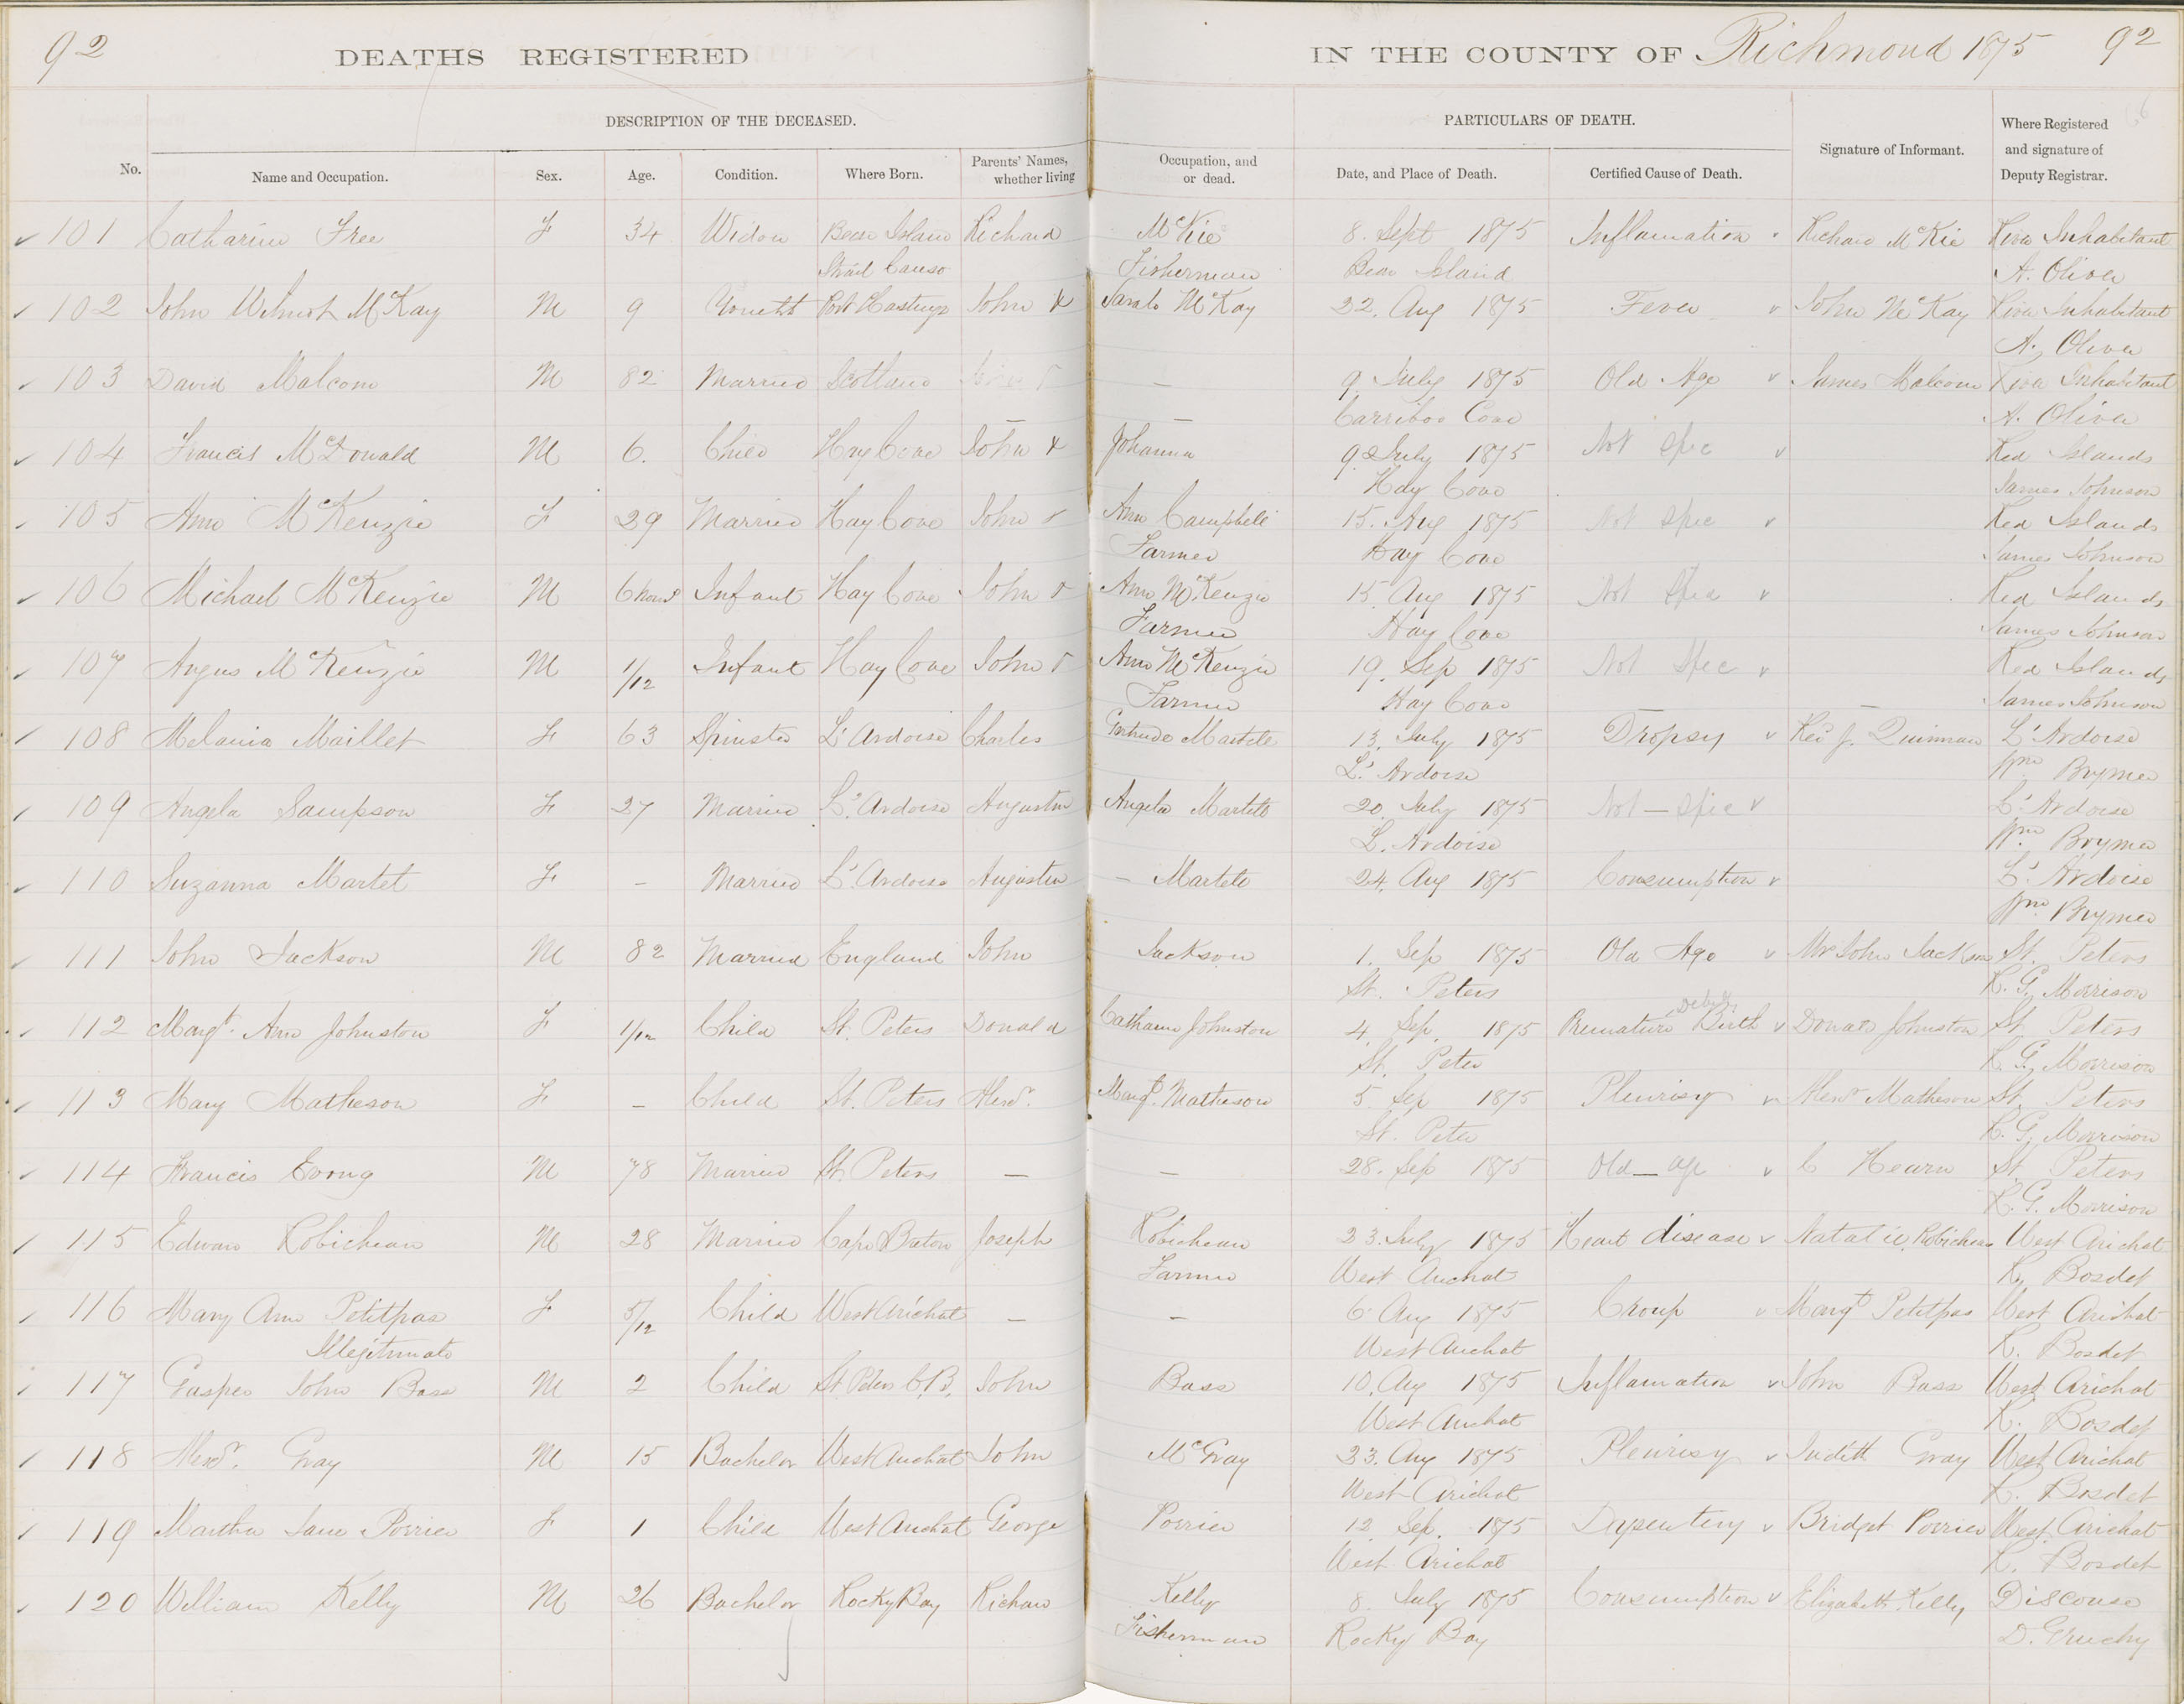 92 DEATHS REGISTERED IN THE COUNTY OF Richmond 1875 92
DESCRIPTION OF THE DECEASED. PARTICULARS OF DEATH.
No. Name and Occupation. Sex. Age. Condition. Where Born. Parents' Names, whether living Occupation, and or dead. Date, and Place of Death. Certified Cause of Death. Signature of Informant. Where Registered and signature of Deputy Registrar.
101 Catharine Free F 34 Widow Bear Island Richard McKie 8. Sept 1875 Inflamation Richard McKie River Inhabitant
Strait Canso Fisherman Bear Island A. Oliver
102 John Wilmot McKay M 9 Youth Port Hastings John & Sarah McKay 22. Aug 1875 Fever John McKay River Inhabitant
A. Oliver
103 David Malcom M 82 Married Scotland — 9 July 1875 Old Age James Malcom River Inhabitant
Carriboo Cove A. Oliver
104 Francis McDonald M 6. Child Hay Cove John & Johanna 9 July 1875 Not Spec Red Islands
Hay Cove James Johnson
105 Ann McKenzie F 29 Married Hay Cove John & Ann Campbell 15. Aug 1875 Not Spec Red Islands
Farmer Hay Cove James Johnson
106 Michael McKenzie M 6 hours Infant Hay Cove John & Ann McKenzie 15. Aug 1875 Not Spec Red Islands
Farmer Hay Cove James Johnson
107 Angus McKenzie M 1/12 Infant Hay Cove John & Ann McKenzie 19. Sep 1875 Not Spec Red Islands
Farmer Hay Cove James Johnson
108 Melania Maillet F 63 Spinster L'Ardoise Charles Gertrude Martele 13. July 1875 Dropsy Rev J. Quinnan L'Ardoise
L'Ardoise Wm Brymer
109 Angela Sampson F 27 Married L'Ardoise Augustin Angela Martele 20. July 1875 Not — Spec L'Ardoise
L. Ardoise Wm Brymer
110 Suzanna Martet F - Married L'Ardoise Augustin — Martele 24. Aug 1875 Consumption L'Ardoise
Wm Brymer
111 John Jackson M 82 Married England John Jackson 1. Sep 1875 Old Age Mr John Jackson St. Peters
St. Peters R. G. Morrison
112 Margt. Ann Johnston F 1/12 Child St. Peters Donald Catharn Johnston 4. Sep. 1875 Premature Debility Birth Donald Johnston St. Peters
St. Peter R. G. Morrison
113 Mary Matheson F — Child St. Peters Alexr. Margt. Matheson 5. Sep 1875 Pleurisy Alexr Matheson St. Peters
St. Peter R. G. Morrison
114 Francis Evong M 78 Married St. Peters — — 28. Sep 1875 Old — age C Hearn St. Peters
R. G. Morrison
115 Edward Robicheau M 28 Married Cape Breton Joseph Robicheau 23. July 1875 Heart disease Natalie Robicheau West Arichat
Farmer West Arichat R. Bosdet
116 Mary Ann Petitpas F 5/12 Child West Arichat — — 6 Aug 1875 Croup Margt Petitpas West Arichat
Illegitimate West Arichat R. Bosdet
117 Gasper John Bass M 2 Child St Peters C.B. John Bass 10. Aug 1875 Inflamation John Bass West Arichat
West Arichat R. Bosdet
118 Alexr. Gray M 15 Bachelor West Arichat John McGray 23. Aug 1875 Pleurisy Judith Gray West Arichat
West Arichat R. Bosdet
119 Martha Jane Poirier F 1 Child West Arichat George Poirier 12. Sep. 1875 Dysentery Bridget Poirier West Arichat
West Arichat R. Bosdet
120 William Kelly M 26 Bachelor Rocky Bay Richard Kelly 8. July 1875 Consumption Elizabeth Kelly Discouse
Fisherman Rocky Bay D. Gruchy